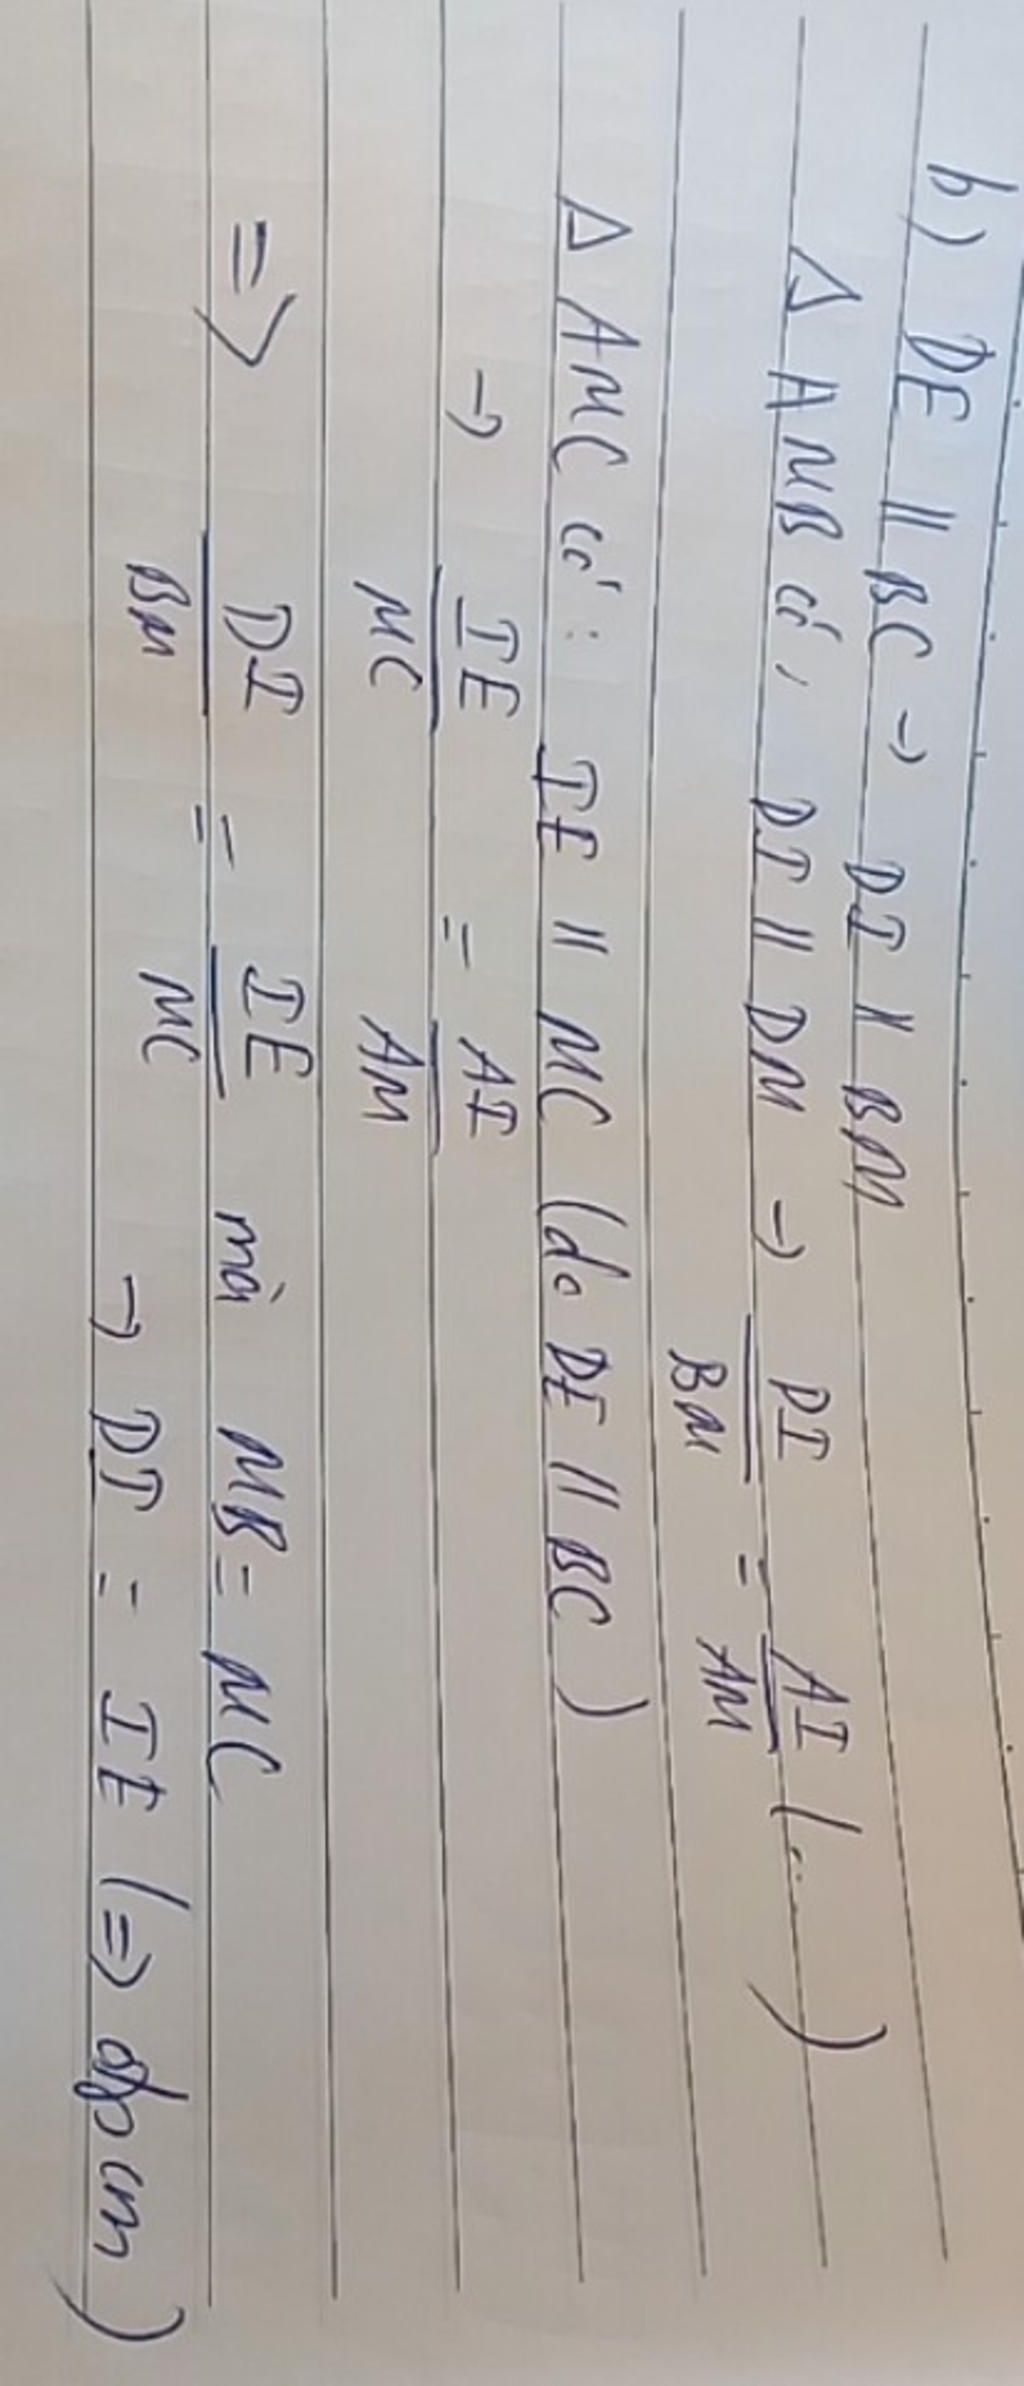 b) DE // BC → DI // BM
Δ AMB có, DI // DM → DI/BM = AI/AM (...)
Δ AMC có: IE // MC (do DE // BC)
→ IE/MC = AI/AM
=> DI/BM = IE/MC mà MB = MC
→ DI = IE (=> đpcm)